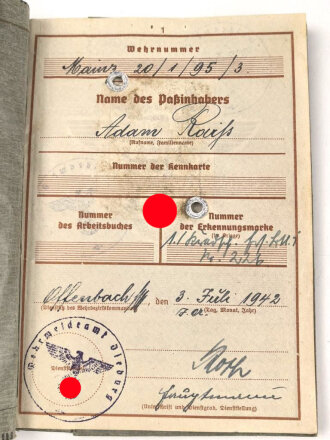 1
Wehrnummer
Mainz 20/1/95/3.
Name des Paßinhabers
Adam Raiß
(Rufname, Familienname)
Nummer der Kennkarte
Nummer
des Arbeitsbuches
Nummer
der Erkennungsmarke
Offenbach, den 3. Juli 1942
(Tag, Monat, Jahr)
Wehrmeldeamt Dieburg
Hauptmann
(Unterschrift und Dienstgrad, Dienststellung)